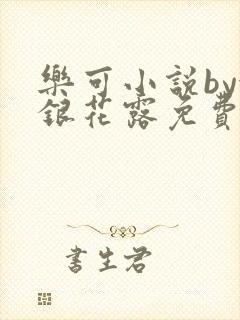 樂可小説by
銀花露免費
書生君